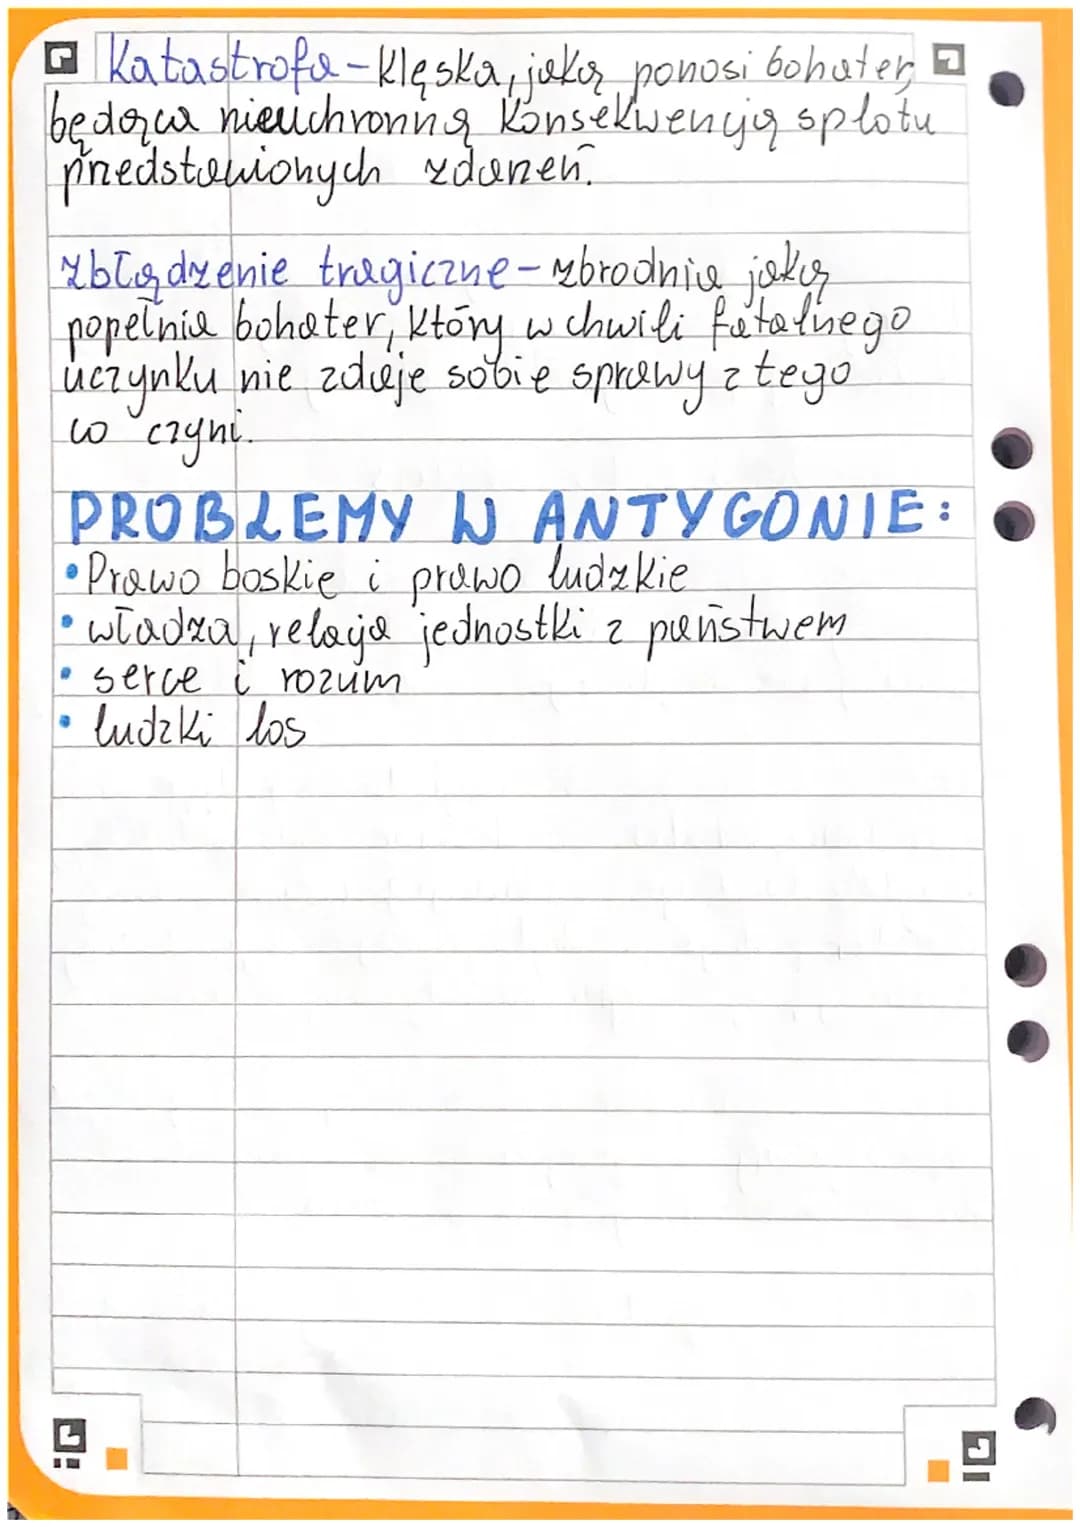 Katastrofa - klęska, jaką ponosi bohater,
będąca nieuchronną konsekwencją splotu
przedstawionych zdarzeń.
zbłądzenie tragiczne - zbrodnia jaką
popełnia bohater, który w chwili fatalnego
uczynku nie zdaje sobie sprawy z tego
co czyni.
PROBLEMY W ANTYGONIE:
• Prawo boskie i prawo ludzkie
• władza, relacja jednostki z państwem
• serce i rozum
• ludzki los